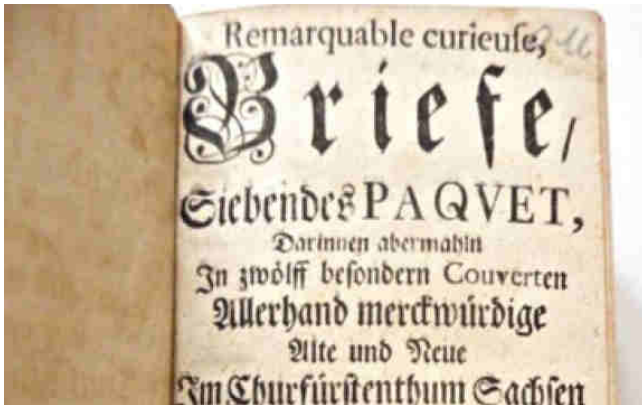 Remarquable curieuſe,
Briefe/
Siebendes PAQVET,
Darinnen abermahln
In zwölff beſondern Couverten
Allerhand merckwürdige
Alte und Neue
Im Churfürſtenthum Sachſen